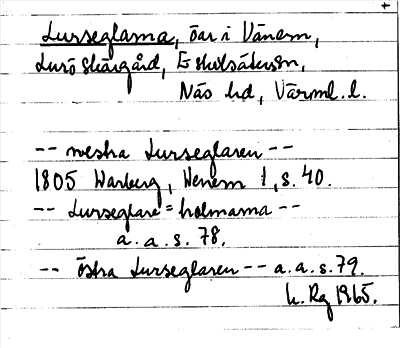 Lurseglarna, öar i Vänern,
Lurö Skärgård, Eskilsäters sn,
Näs hd, Värml. l.
-- westra Lurseglaren --
1805 Warberg, Wenern 1, s. 40.
-- Lurseglare=holmarna --
a. a. s. 78.
-- östra Lurseglaren -- a. a. s. 79.
h. Rg 1965.